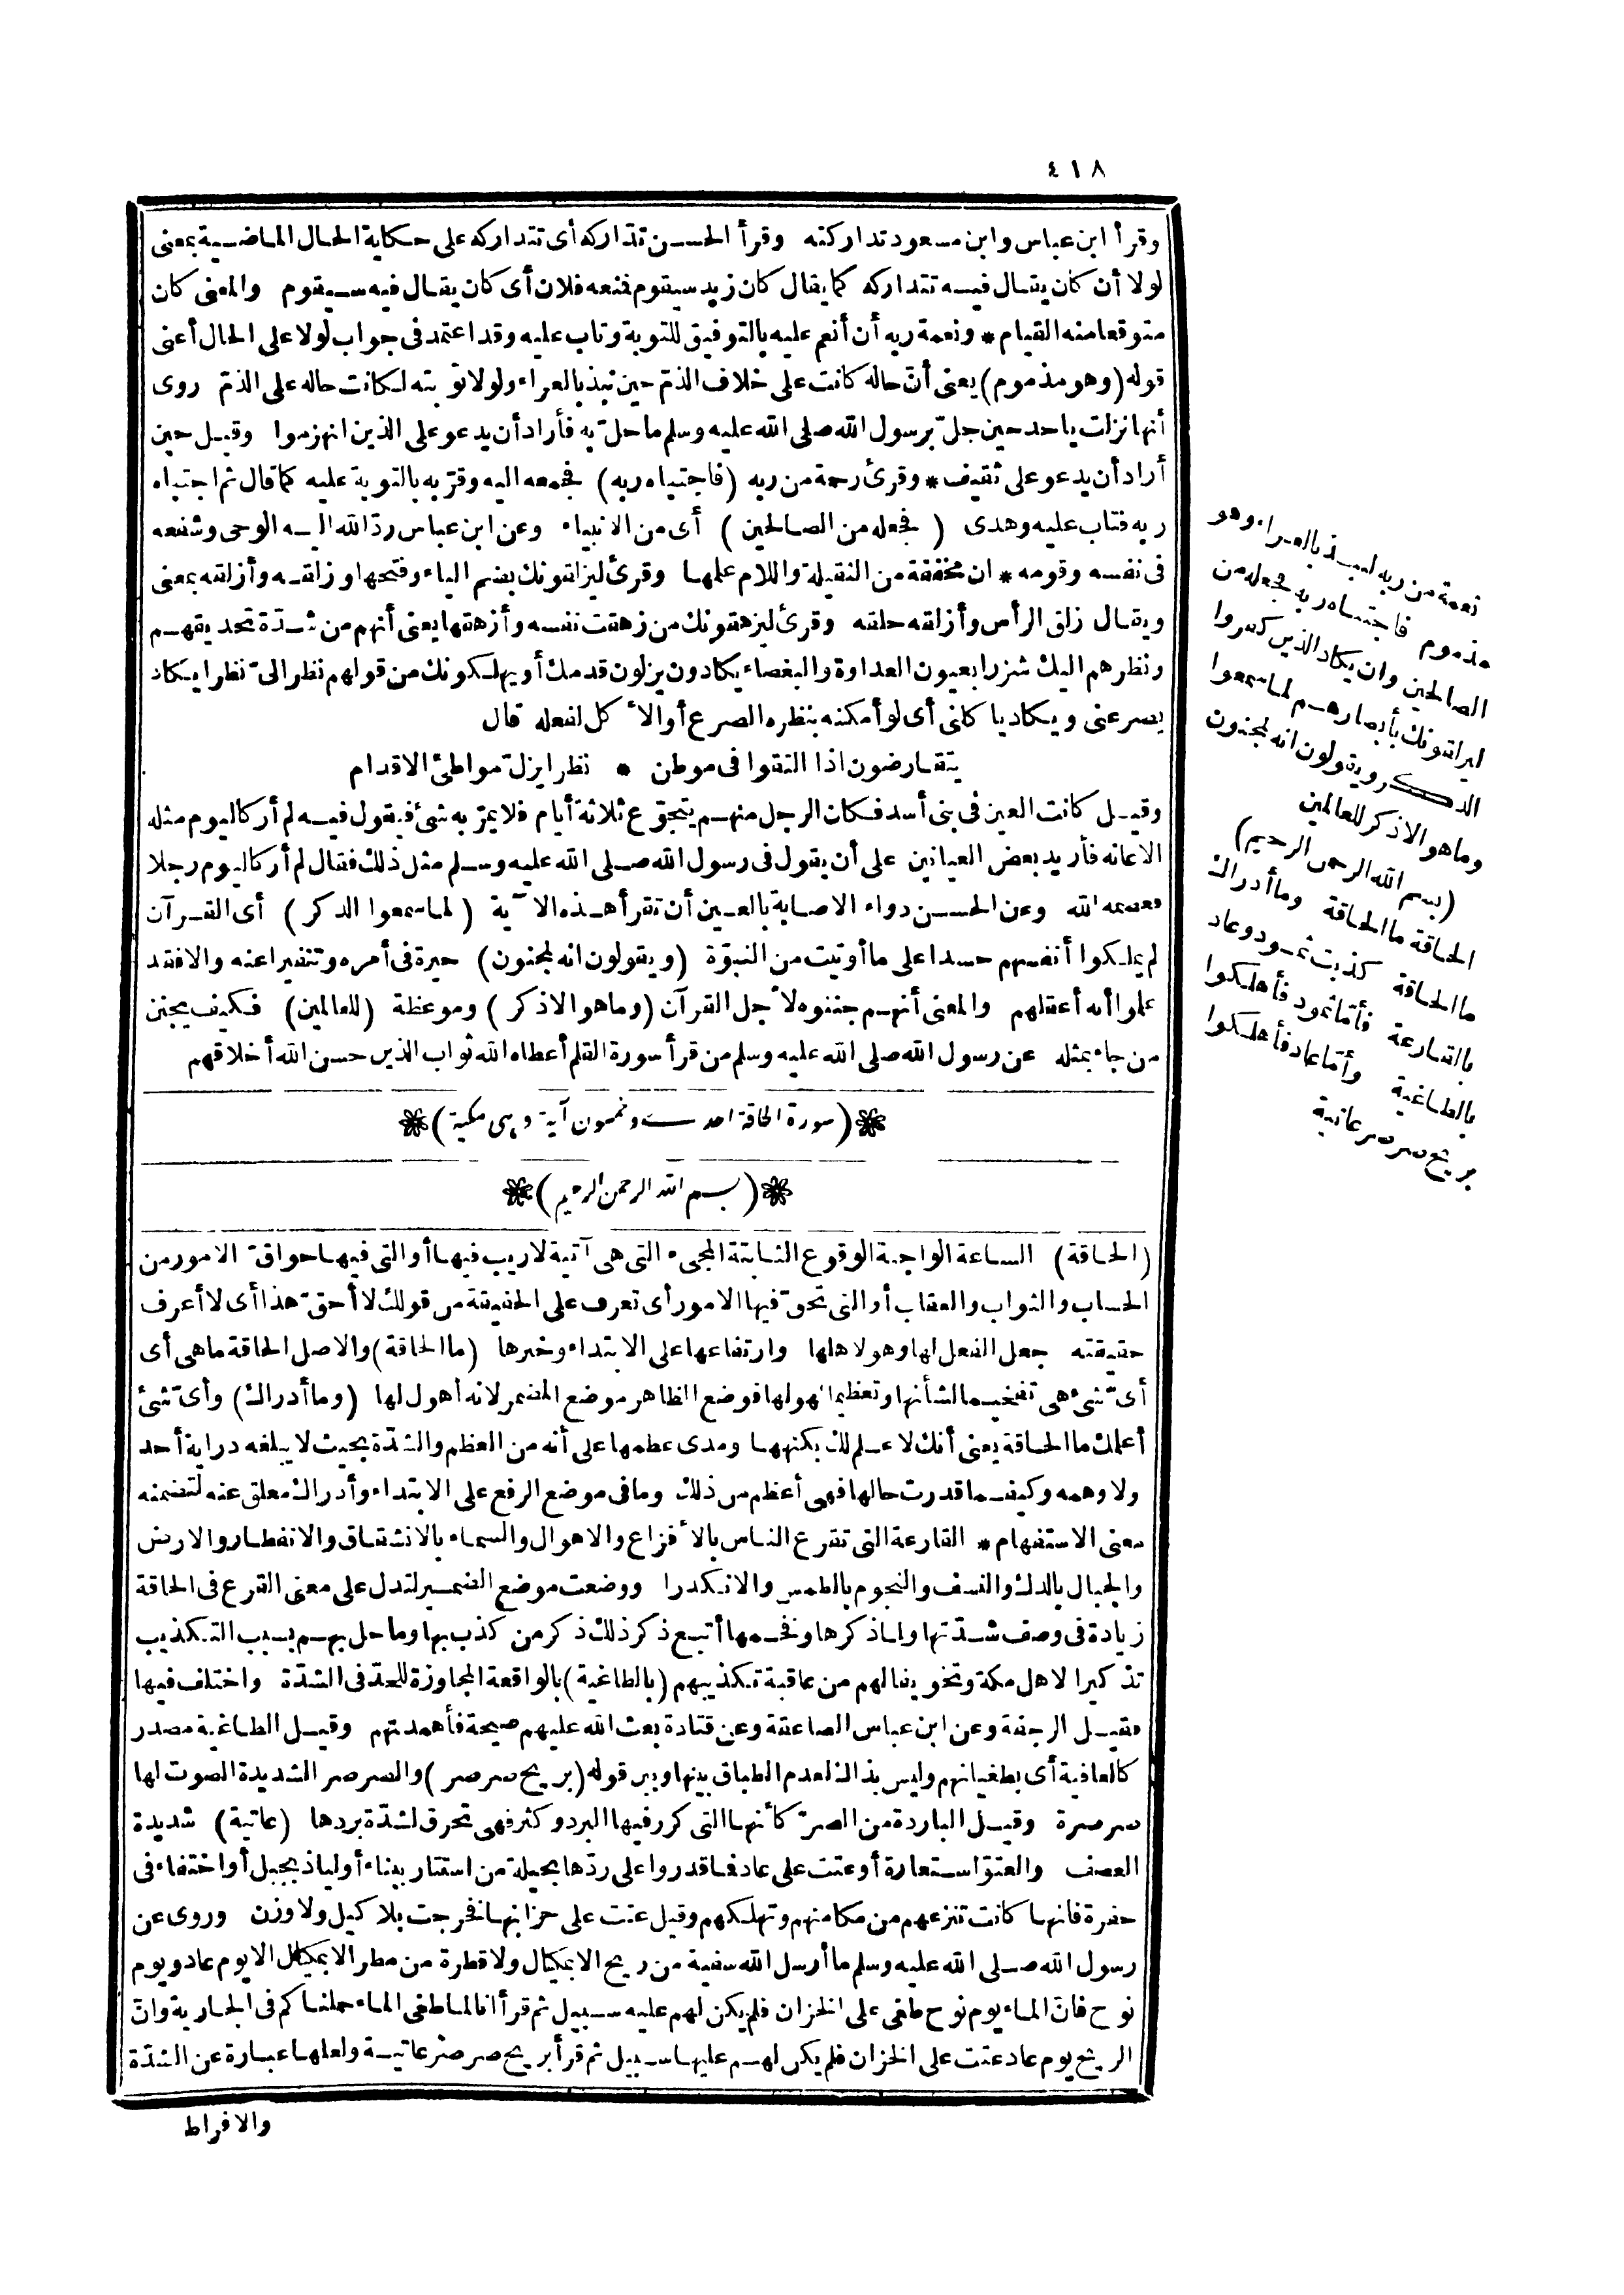 ٤١٨
وقرأ ابن عباس وابن مسعود تداركته وقرأ الحسن تداركه أى تتداركه على حكاية الحال الماضية بمعنى
لولا أن كان يقال فيه تتداركه كما يقال كان زيد سيقوم فمنعه فلان أى كان يقال فيه سيقوم والمعنى كان
متوقعا منه القيام * ونعمة ربه أن أنعم عليه بالتوفيق للتوبة وتاب عليه وقد اعتمد فى جواب لولا على الحال أعنى
قوله (وهو مذموم) يعنى أنّ حاله كانت على خلاف الذمّ حين نبذ بالعراء ولولا توبته لكانت حاله على الذمّ روى
أنها نزلت بأحد حين حلّ برسول الله صلى الله عليه وسلم ما حلّ به فأراد أن يدعو على الذين انهزموا وقيل حين
أراد أن يدعو على ثقيف * وقرئ رحمة من ربه (فاجتباه ربه) فجمعه اليه وقرّبه بالتوبة عليه كما قال ثم اجتباه
ربه فتاب عليه وهدى (فجعله من الصالحين) أى من الانبياء وعن ابن عباس ردّ الله اليه الوحى وشفعه
فى نفسه وقومه * ان مخففة من الثقيلة واللام علمها وقرئ ليزلقونك بضم الياء وفتحها وزلقه وأزلقه بمعنى
ويقال زلق الرأس وأزلقه حلقه وقرئ ليزهقونك من زهقت نفسه وأزهقها يعنى أنهم من شدّة تحديقهم
ونظرهم اليك شزرا بعيون العداوة والبغضاء يكادون يزلون قدمك أو يهلكونك من قولهم نظر الىّ نظرا يكاد
يصرعنى ويكاد يأكلنى أى لو أمكنه بنظره الصرع أو الأكل لفعله قال
يتقارضون اذا التقوا فى موطن * نظرا يزلّ مواطئ الاقدام
وقيل كانت العين فى بنى أسد فكان الرجل منهم يتجوّع ثلاثة أيام فلا يمرّ به شئ فيقول فيه لم أر كاليوم مثله
الا عانه فأريد بعض العيانين على أن يقول فى رسول الله صلى الله عليه وسلم مثل ذلك فقال لم أر كاليوم رجلا
فعصمه الله وعن الحسن دواء الاصابة بالعين أن تقرأ هذه الآية (لما سمعوا الذكر) أى القرآن
لم يملكوا أنفسهم حسدا على ما أوتيت من النبوّة (ويقولون انه لمجنون) حيرة فى أمره وتنفيرا عنه والا فقد
علموا أنه أعقلهم والمعنى أنهم جننوه لأجل القرآن (وما هو الا ذكر) وموعظة (للعالمين) فكيف يجنن
من جاء بمثله عن رسول الله صلى الله عليه وسلم من قرأ سورة القلم أعطاه الله ثواب الذين حسن الله أخلاقهم
(سورة الحاقة احدى وخمسون آية وهى مكية)
(بسم الله الرحمن الرحيم)
(الحاقة) الساعة الواجبة الوقوع الثابتة المجىء التى هى آتية لا ريب فيها أو التى فيها حواقّ الامور من
الحساب والثواب والعقاب أو التى تحقّ فيها الامور أى تعرف على الحقيقة من قولك لا أحقّ هذا أى لا أعرف
حقيقته جعل الفعل لها وهو لاهلها وارتفاعها على الابتداء وخبرها (ما الحاقة) والاصل الحاقة ما هى أى
أىّ شئ هى تفخيما لشأنها وتعظيما لهولها فوضع الظاهر موضع المضمر لانه أهول لها (وما أدراك) وأىّ شئ
أعلمك ما الحاقة يعنى أنك لا علم لك بكنهها ومدى عظمها على أنه من العظم والشدّة بحيث لا يبلغه دراية أحد
ولا وهمه وكيفما قدرت حالها فهى أعظم من ذلك وما فى موضع الرفع على الابتداء وأدراك معلق عنه لتضمنه
معنى الاستفهام * القارعة التى تقرع الناس بالأفزاع والاهوال والسماء بالانشقاق والانفطار والارض
والجبال بالدك والنسف والنجوم بالطمس والانكدار ووضعت موضع الضمير لتدل على معنى القرع فى الحاقة
زيادة فى وصف شدّتها ولما ذكرها وفخمها أتبع ذكر ذلك ذكر من كذب بها وما حل بهم بسبب التكذيب
تذكيرا لاهل مكة وتخويفا لهم من عاقبة تكذيبهم (بالطاغية) بالواقعة المجاوزة للحدّ فى الشدّة واختلف فيها
فقيل الرجفة وعن ابن عباس الصاعقة وعن قتادة بعث الله عليهم صيحة فأهمدتهم وقيل الطاغية مصدر
كالعافية أى بطغيانهم وليس بذاك لعدم الطباق بينها وبين قوله (بريح صرصر) والصرصر الشديدة الصوت لها
صرصرة وقيل الباردة من الصرّ كأنها التى كرر فيها البرد وكثر فهى تحرق لشدّة بردها (عاتية) شديدة
العصف والعتوّ استعارة أو عتت على عاد فما قدروا على ردّها بحيلة من استتار ببناء أو لياذ بجبل أو اختفاء فى
حفرة فانها كانت تنزعهم من مكامنهم وتهلكهم وقيل عتت على خزانها فخرجت بلا كيل ولا وزن وروى عن
رسول الله صلى الله عليه وسلم ما أرسل الله سفية من ريح الا بمكيال ولا قطرة من مطر الا بمكيال الا يوم عاد ويوم
نوح فانّ الماء يوم نوح طغى على الخزان فلم يكن لهم عليه سبيل ثم قرأ انا لما طغى الماء حملناكم فى الجارية وانّ
الريح يوم عاد عتت على الخزان فلم يكن لهم عليها سبيل ثم قرأ بريح صرصر عاتية ولعلها عبارة عن الشدّة
والافراط
نعمة من ربه لنبذ بالعراء وهو
مذموم فاجتباه ربه فجعله من
الصالحين وان يكاد الذين كفروا
ليزلقونك بأبصارهم لما سمعوا
الذكر ويقولون انه لمجنون
وما هو الا ذكر للعالمين
(بسم الله الرحمن الرحيم)
الحاقة ما الحاقة وما أدراك
ما الحاقة كذبت ثمود وعاد
بالقارعة فأمّا ثمود فأهلكوا
بالطاغية وأمّا عاد فأهلكوا
بريح صرصر عاتية